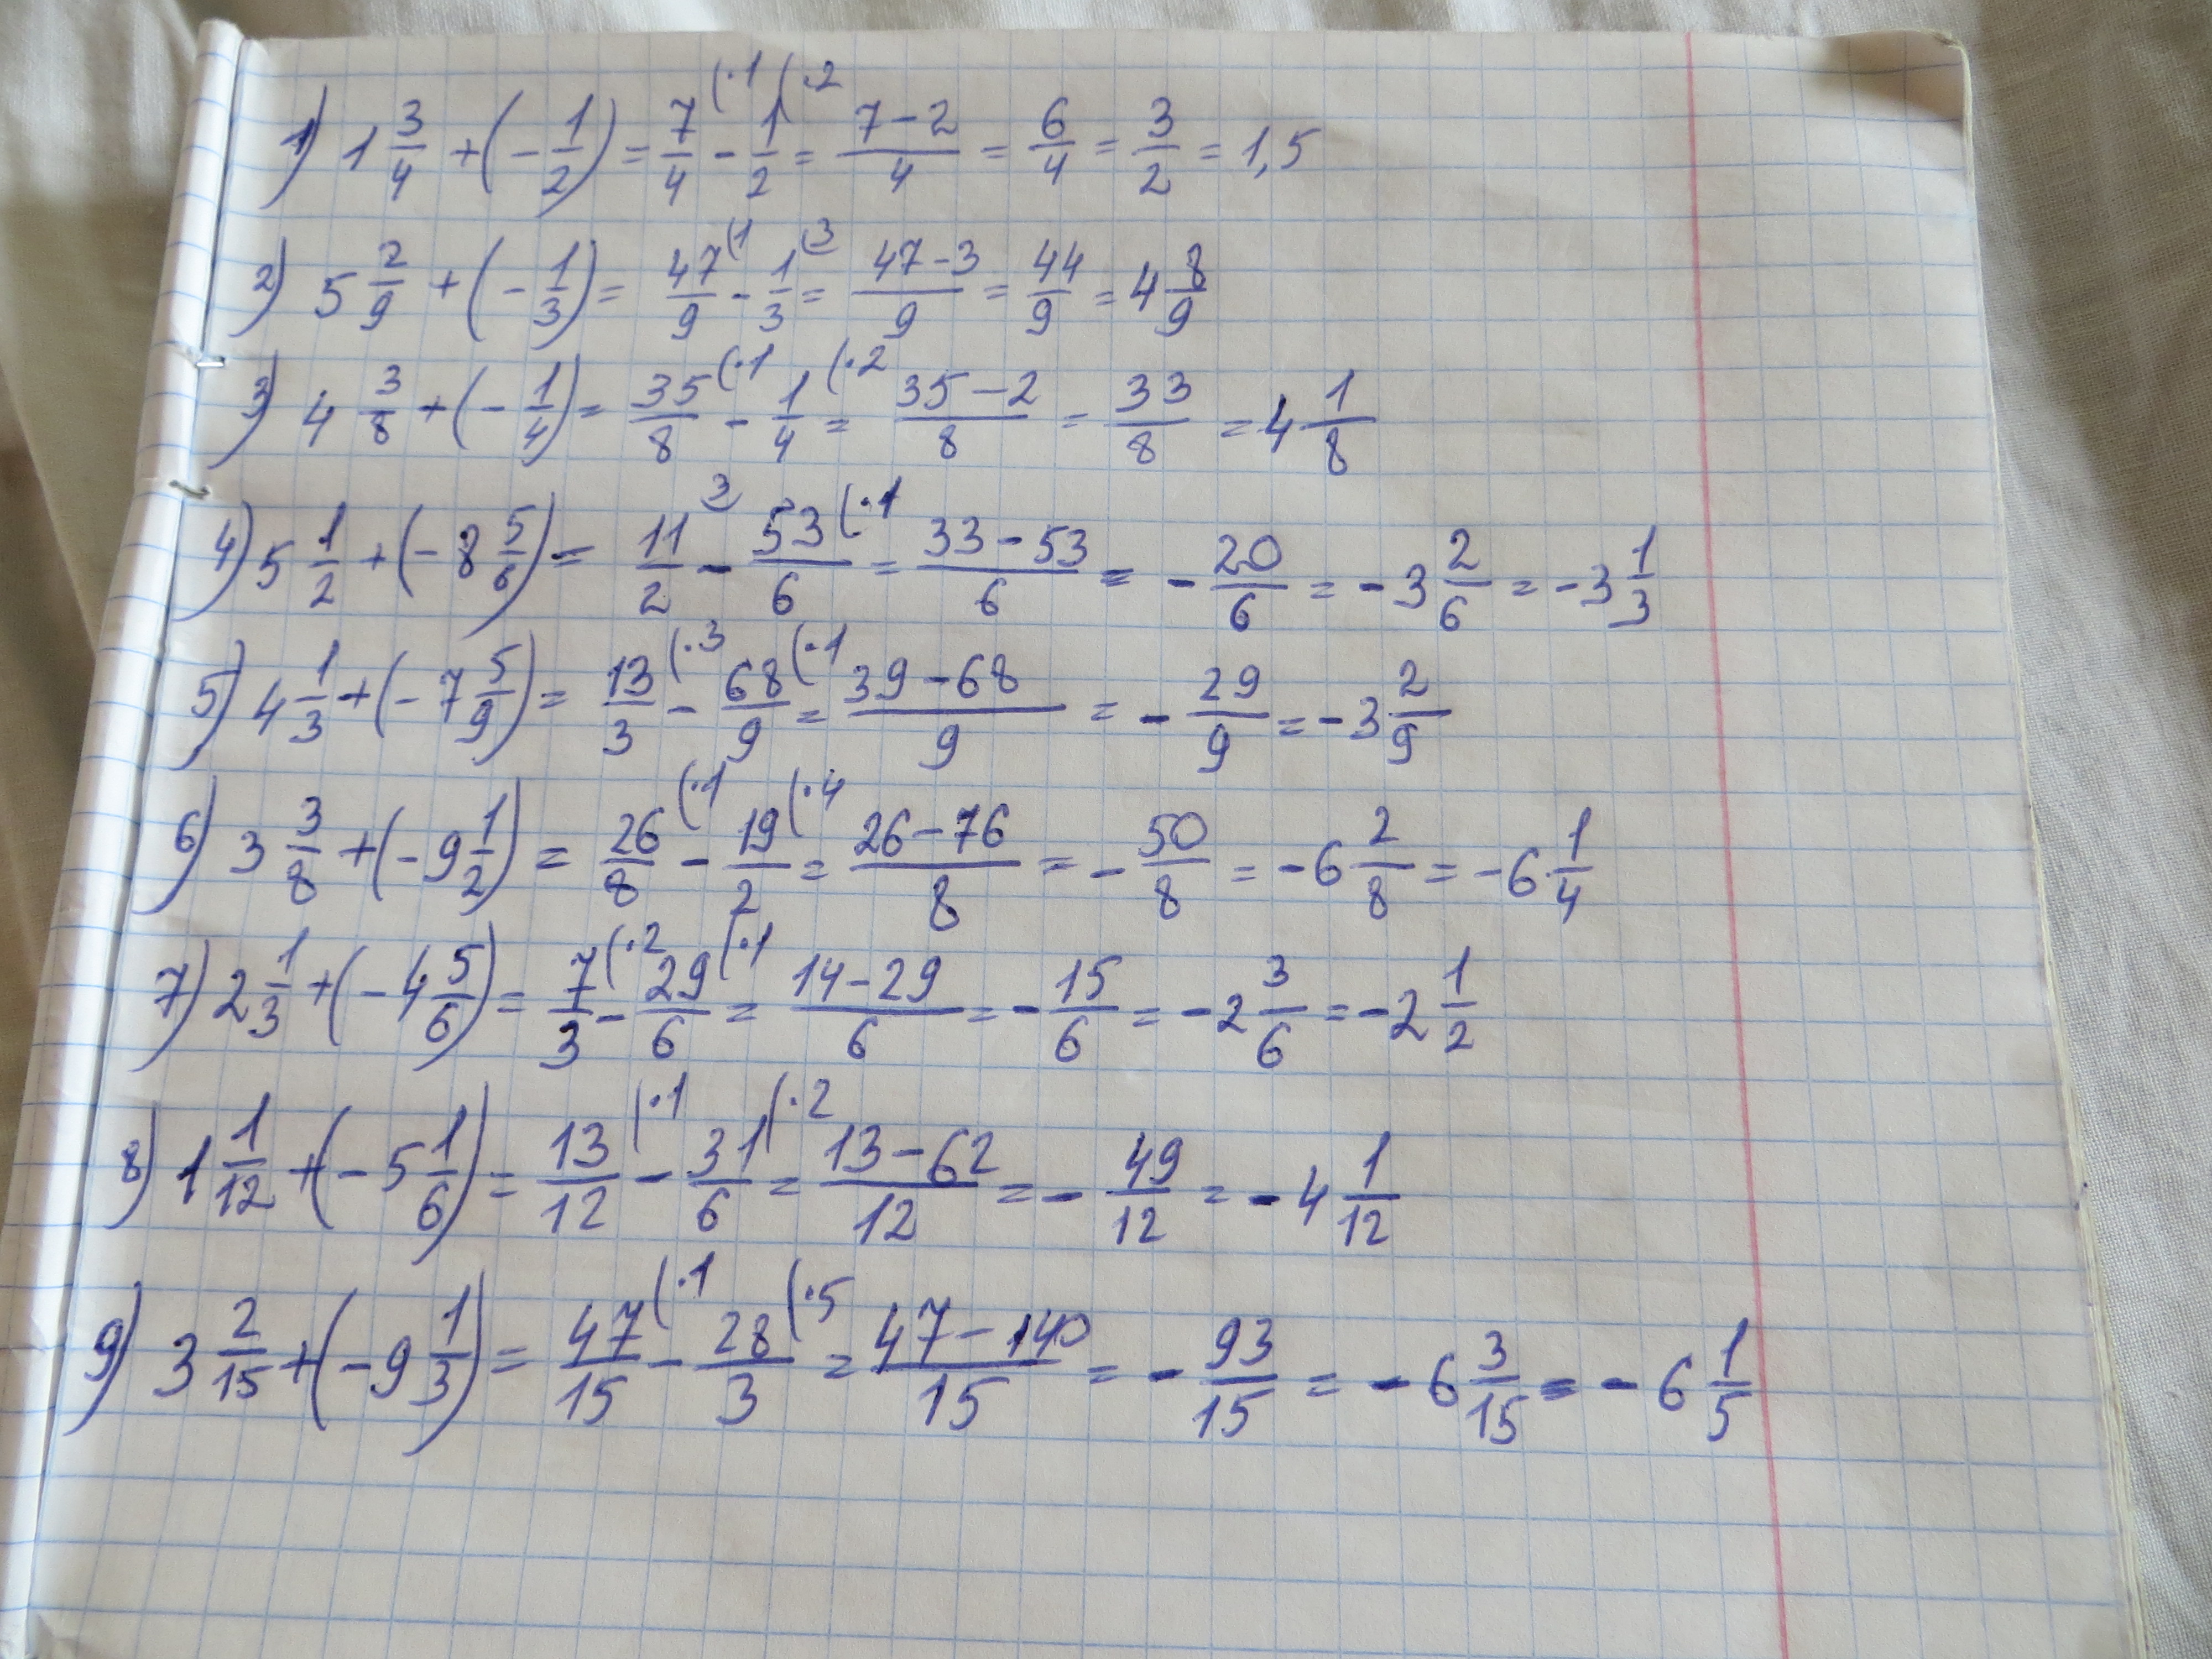 1) 1 3/4 + (- 1/2) = 7/4 (·1 - 1/2 (·2 = (7-2)/4 = 6/4 = 3/2 = 1,5
2) 5 2/9 + (- 1/3) = 47/9 (1 - 1/3 (3 = (47-3)/9 = 44/9 = 4 8/9
3) 4 3/8 + (- 1/4) = 35/8 (·1 - 1/4 (·2 = (35-2)/8 = 33/8 = 4 1/8
4) 5 1/2 + (- 8 5/6) = 11/2 3 - 53/6 (·1 = (33-53)/6 = - 20/6 = -3 2/6 = -3 1/3
5) 4 1/3 + (- 7 5/9) = 13/3 (·3 - 68/9 (·1 = (39-68)/9 = - 29/9 = -3 2/9
6) 3 3/8 + (- 9 1/2) = 26/8 (·1 - 19/2 (·4 = (26-76)/8 = - 50/8 = -6 2/8 = -6 1/4
7) 2 1/3 + (- 4 5/6) = 7/3 (·2 - 29/6 (·1 = (14-29)/6 = - 15/6 = -2 3/6 = -2 1/2
8) 1 1/12 + (- 5 1/6) = 13/12 (·1 - 31/6 (·2 = (13-62)/12 = - 49/12 = -4 1/12
9) 3 2/15 + (- 9 1/3) = 47/15 (·1 - 28/3 (·5 = (47-140)/15 = - 93/15 = -6 3/15 = -6 1/5